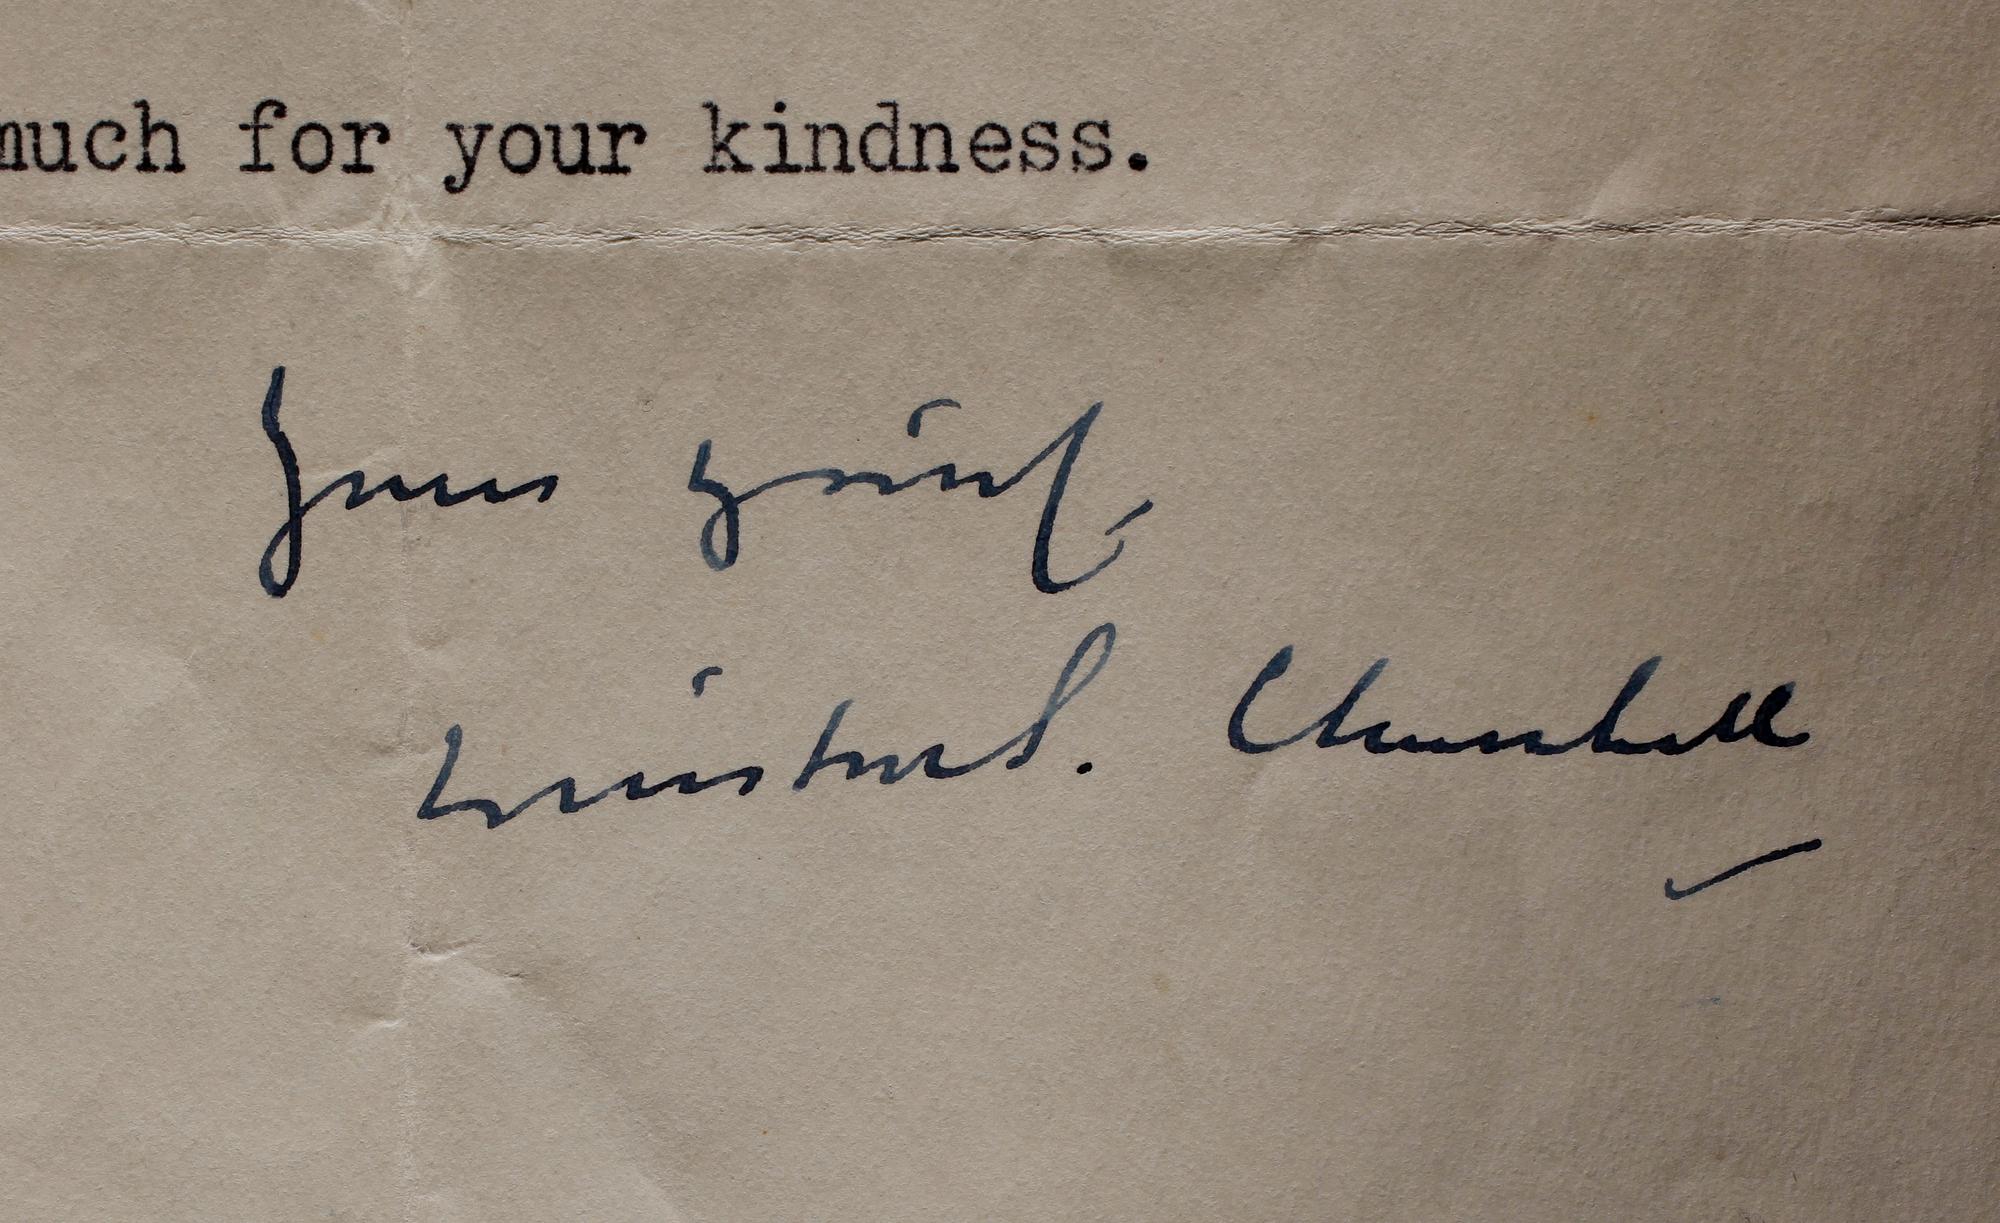 much for your kindness.
Yours
Winston S. Churchill